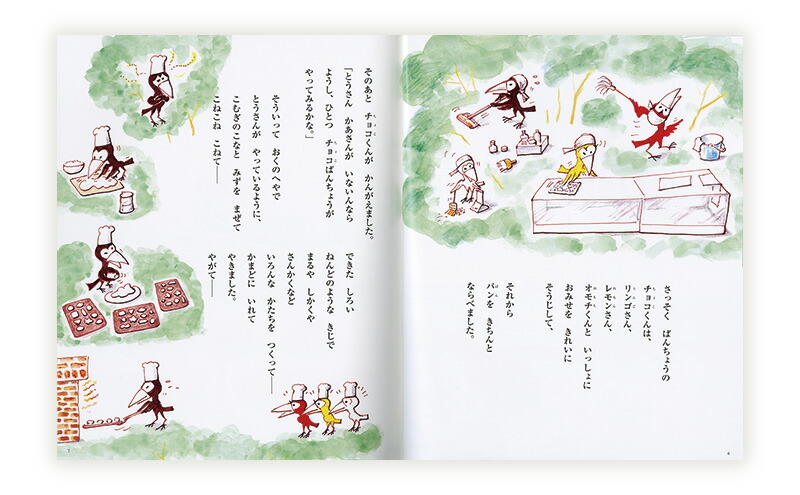 さっそく ばんちょうの
チョコくんは、
リンゴさん、
レモンさん、
オモチくんと いっしょに
おみせを きれいに
そうじして、
それから
パンを きちんと
ならべました。
6
そのあと チョコくんが かんがえました。
「とうさん かあさんが いないんなら
ようし、ひとつ チョコばんちょうが
やってみるかな。」
そういって おくのへやで
とうさんが やっているように、
こむぎのこなと みずを まぜて
こねこね こねて――
できた しろい
ねんどのような きじで
まるや しかくや
さんかくなど
いろんな かたちを つくって――
かまどに いれて
やきました。
やがて――
7